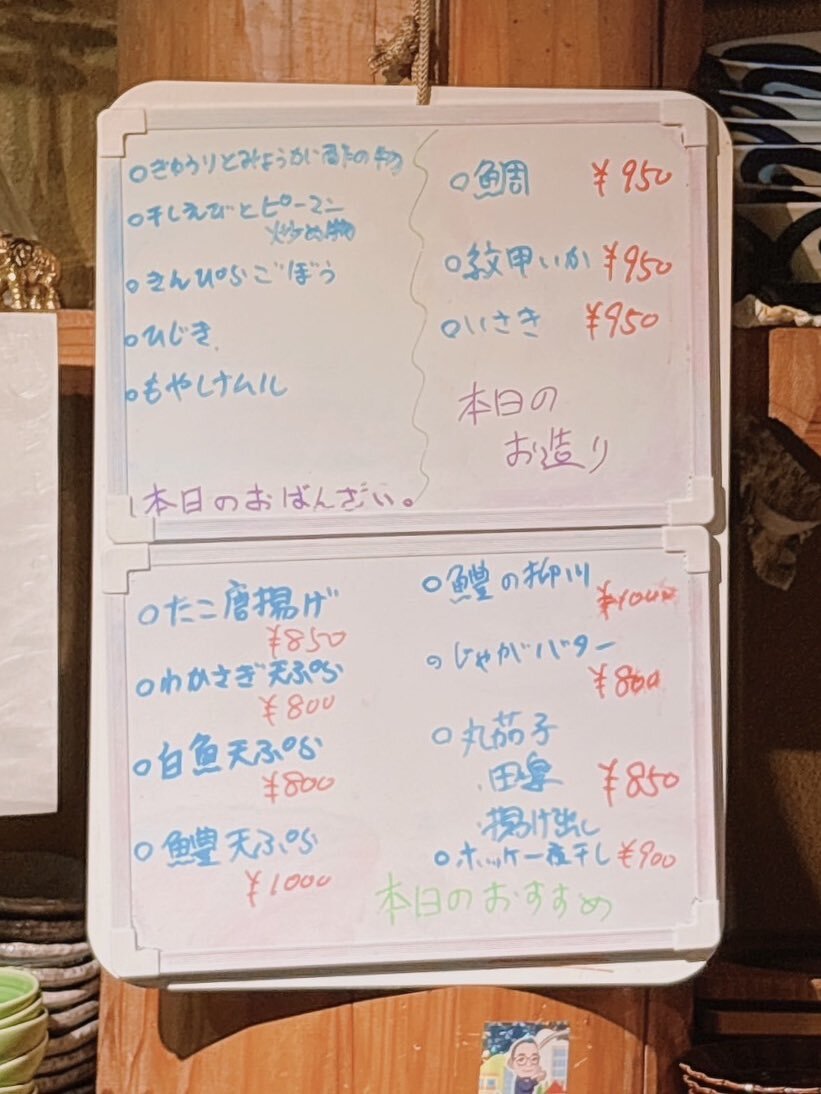 ○きゅうりとみょうが 酢の物
○干しえびとピーマン
炒め物
○きんぴらごぼう
○ひじき
○もやしナムル
本日のおばんざい。
○鯛 ¥950
○紋甲いか ¥950
○いさき ¥950
本日の
お造り
○たこ唐揚げ
¥850
○わかさぎ天ぷら
¥800
○白魚天ぷら
¥800
○鱧天ぷら
¥1000
○鱧の柳川
¥1000
○じゃがバター
¥800
○丸茄子
田楽 ¥850
揚げ出し
○ホッケ一夜干し ¥900
本日のおすすめ